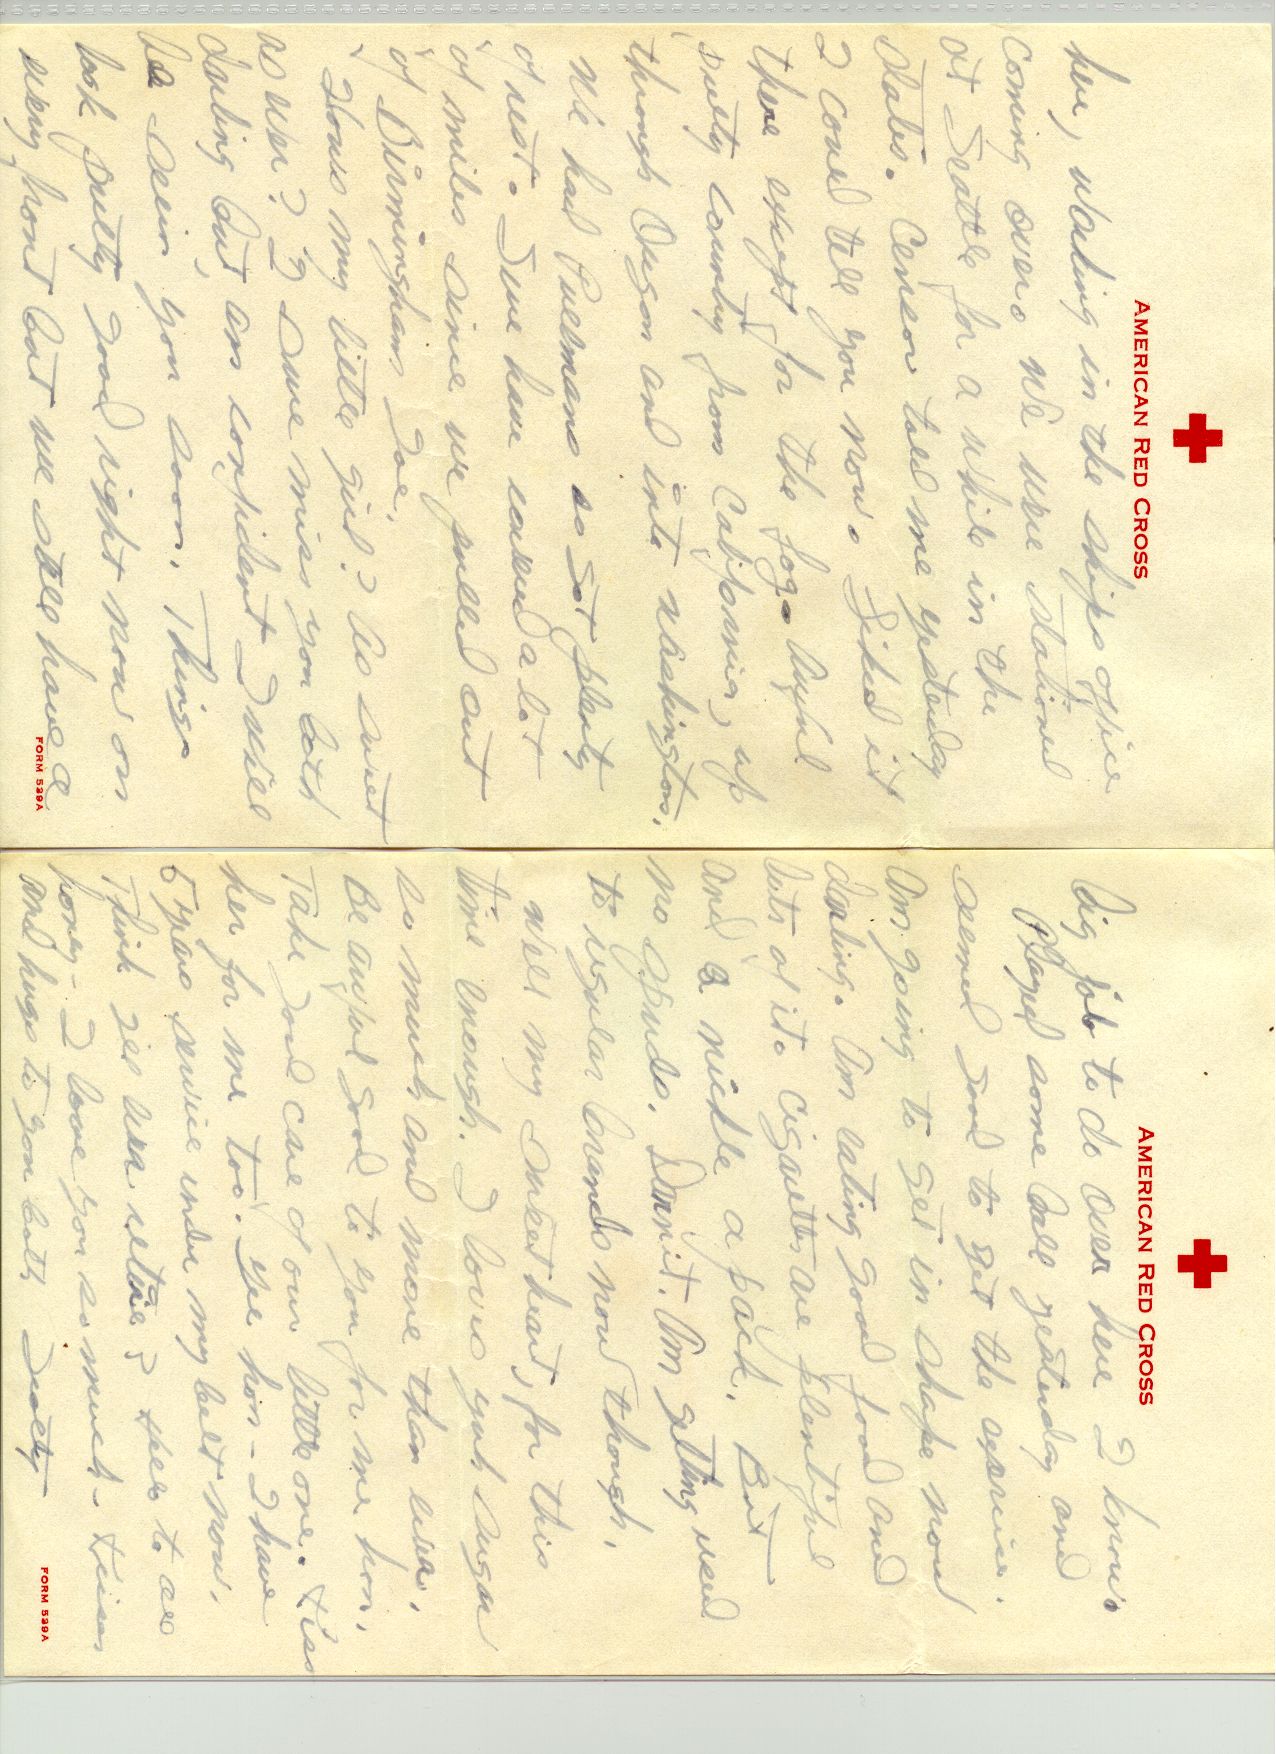 AMERICAN RED CROSS
here, working in the ships office
coming over. We were stationed
at Seattle for a while in the
states. Censor told me yesterday
I could tell you now. Liked it
there except for the fog. Awful
pretty country from California, up
through Oregon and into Washington.
We had Pullmans so got plenty
of rest. Sure have covered a lot
of miles since we pulled out
of Birmingham
Hows my little girl? As sweet
as ever? I sure miss you both
darling but am confident I will
be seein you soon. Things
look pretty good right now on
every front but we still have a
FORM 539A
AMERICAN RED CROSS
big job to do over here I know.
Played some ball yesterday and
seemed good to get the exercise.
Am going to get in shape now
darling. Am eating good food and
lots of it. Cigarettes are plentiful
and a nickle a pack. But
no Dammit. Am getting used
to regular brands now though.
Well my sweetheart, for this
time enough. I love you sugar
so much and more than ever.
Be awful good to you for me hon.
Take good care of our little one. Kiss
her for me too. Gee hon - I have
5 years service under my belt now.
Think ill ever retire?
honey - I love you so much - Kisses
and hugs to you both
FORM 539A